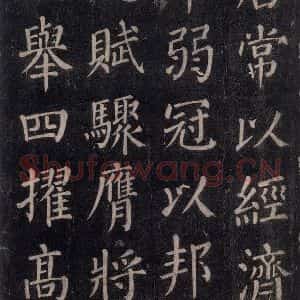 常以經濟
弱冠以邦
賦驟膺將
舉四擢高
Shufawang.CN